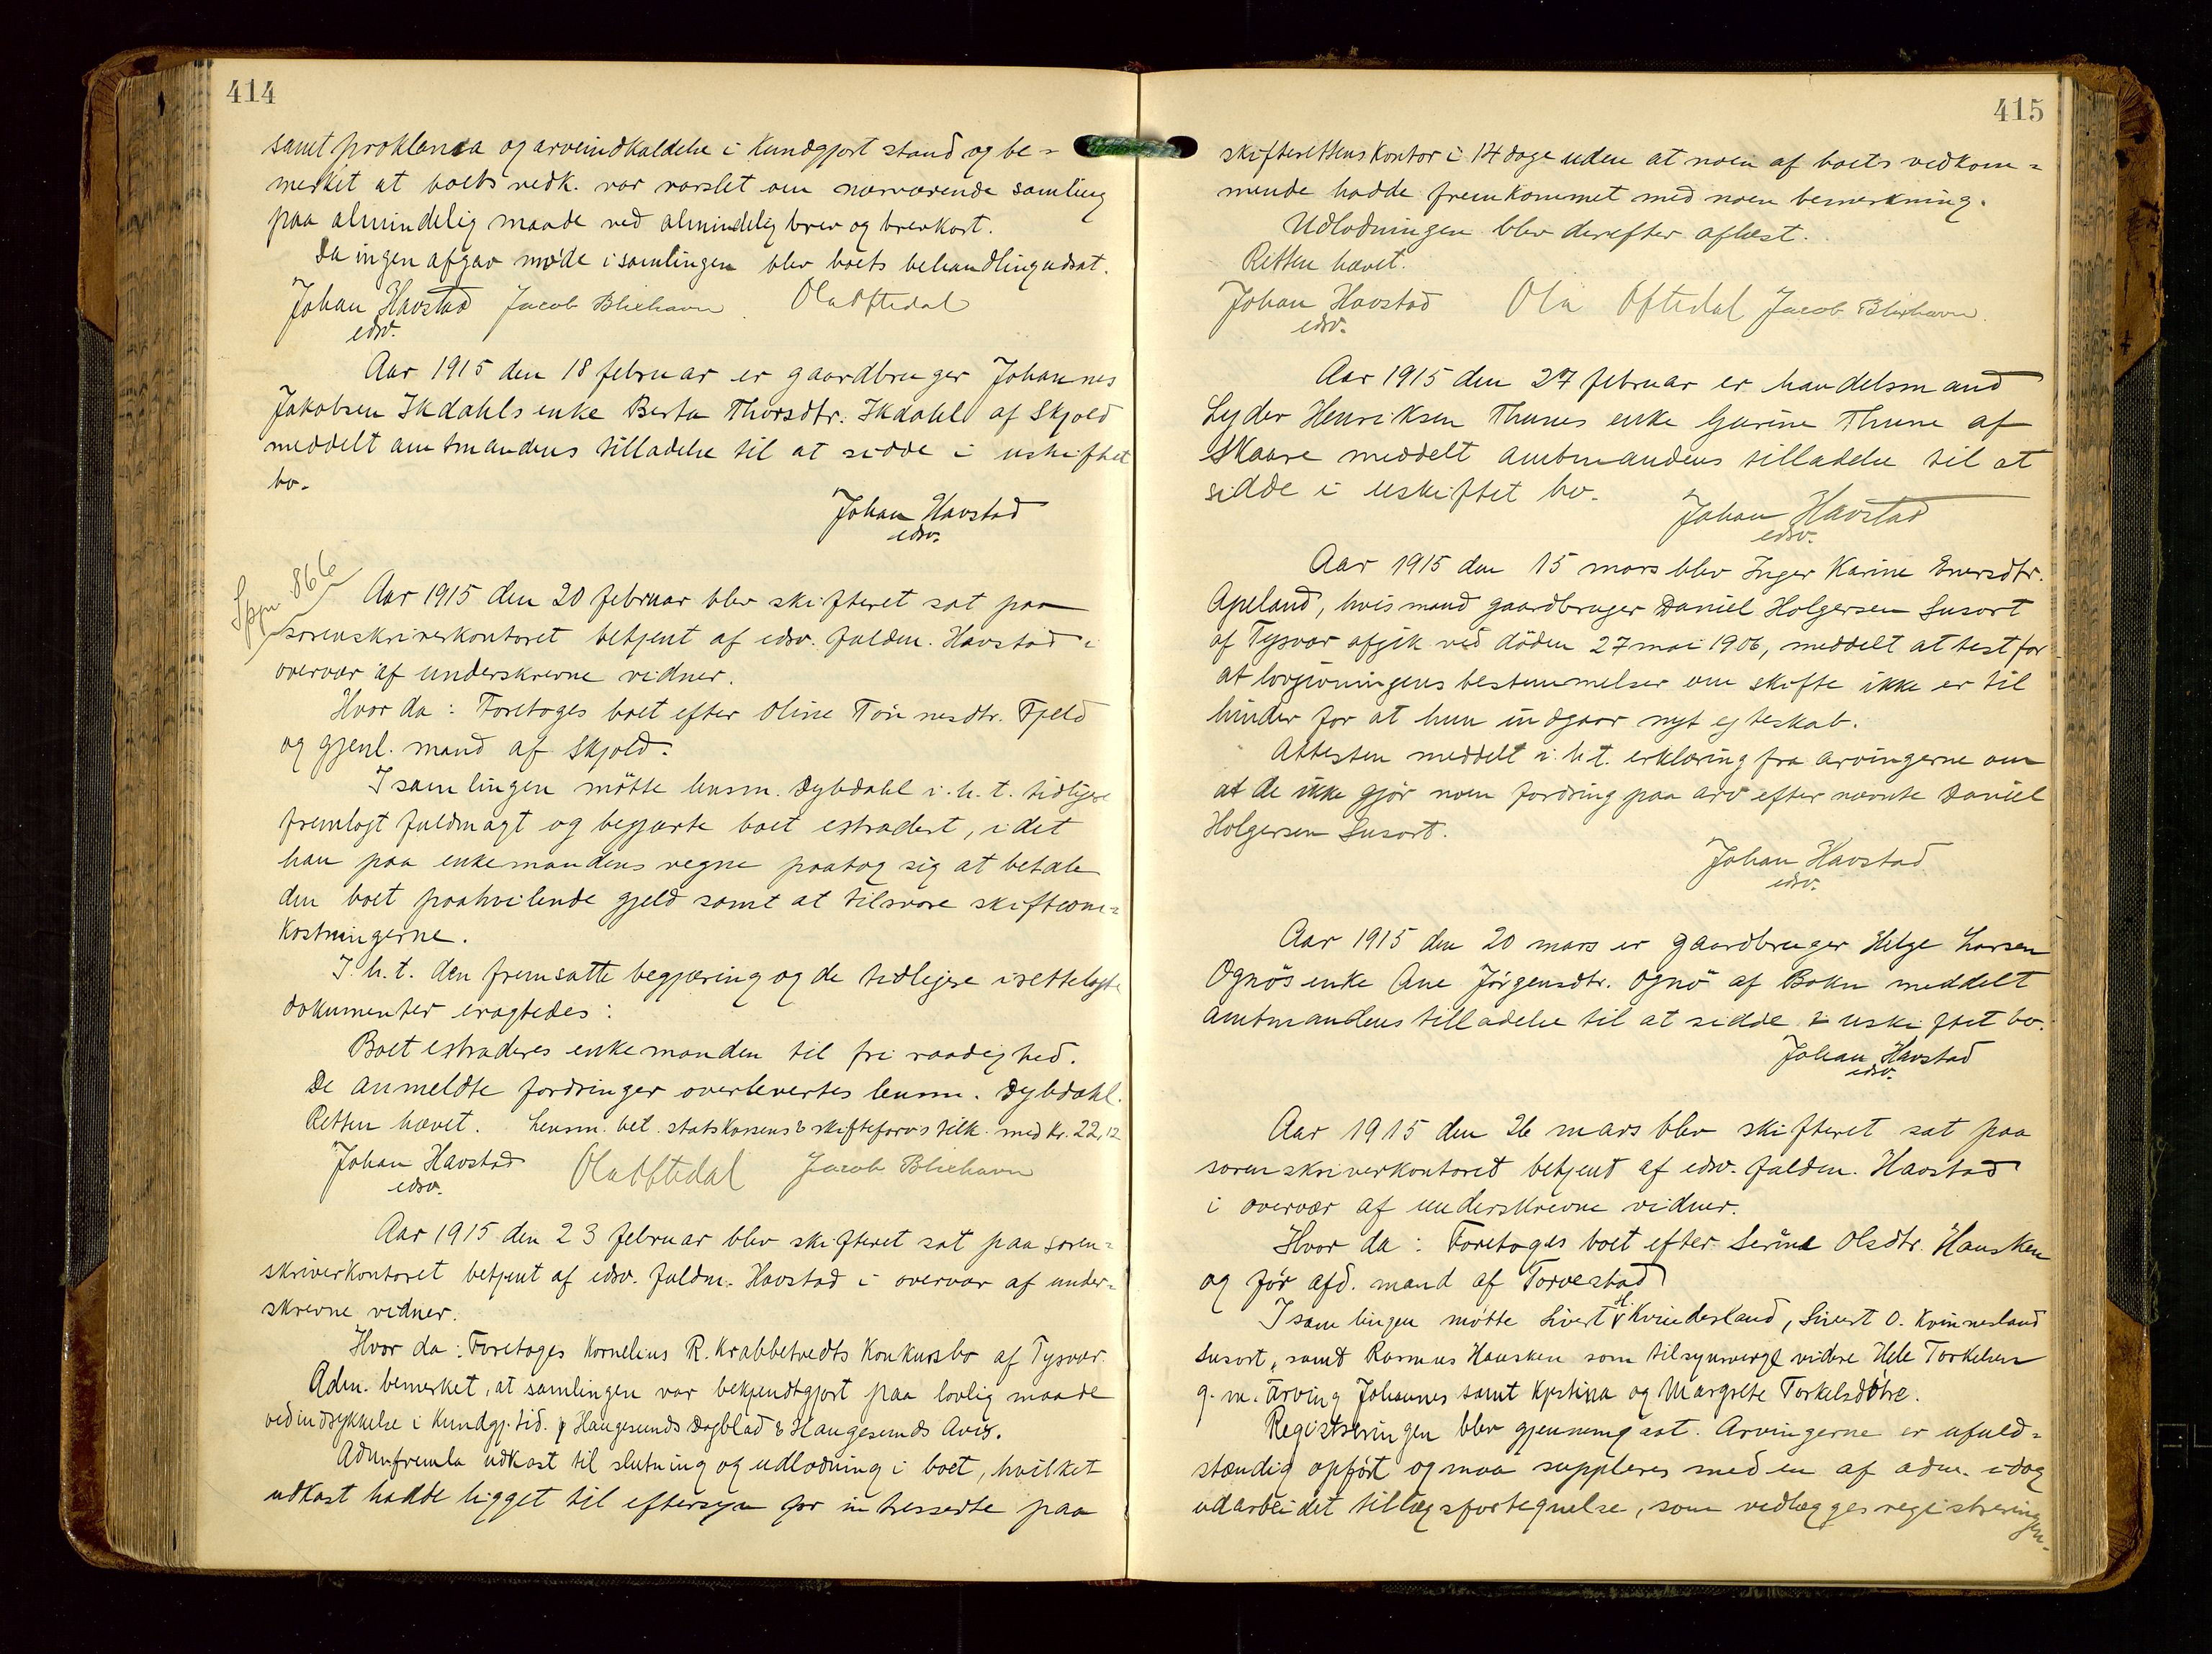 414
samt proklama og arveindkaldelse i Kundgjort stand og be=
merket at boets vedk. var varslet om nærværende samling
paa almindelig maade ved almindelig brev og brevkort.
Da ingen afgav møde i samlingen blev boets behandling udsat.
Johan Havstad Jacob Blixhavn Ola Oftedal
edsv.
Aar 1915 den 18 februar er gaardbruger Johannes
Jakobsen Ikdahls enke Berta Thorsdtr. Ikdahl af Skjold
meddelt amtmandens tilladelse til at sidde i uskiftet
bo.
Johan Havstad
edsv.
866
Aar 1915 den 20 februar blev skifteret sat paa
sorenskriverkontoret betjent af edsv. fuldm. Havstad i
overvær af underskrevne vidner.
Hvor da: Foretoges boet efter Oline Tønnesdtr. Fjeld
og gjenl. mand af Skjold.
I samlingen møtte lensm. Dybdahl i. h. t. tidligere
fremlagt fuldmagt og begjærte boet extradert, idet
han paa enkemandens vegne paatog sig at betale
den boet paahvilende gjeld samt at tilsvare skifteom=
kostningerne.
I. h. t. den fremsatte begjæring og de tidligere irettelagte
dokumenter eragtedes:
Boet extraderes enkemanden til fri raadighed.
De anmeldte fordringer overlevertes lensm. Dybdahl.
Retten hævet. Lensm. bet. statskassens & skifteforv's tilk. med Kr. 22,12
Johan Havstad Ola Oftedal Jacob Blixhavn
edsv.
Aar 1915 den 23 februar blev skifteret sat paa soren=
skriverkontoret betjent af edsv. fuldm. Havstad i overvær af under=
skrevne vidner.
Hvor da: Foretoges Kornelius R. Krabbetvedts Konkursbo af Tysvær.
Adm. bemerket, at samlingen var bekjendtgjort paa lovlig maade
ved indrykkelse i Kundgj. tid. Haugesunds Dagblad & Haugesunds Avis.
Adm fremla udkast til slutning og udlodning i boet, hvilket
udkast hadde ligget til eftersyn for intresserte paa
415
skifterettens Kontor i 14 dage uden at noen af boets vedkom=
mende hadde fremkommet med noen bemerkning.
Udlodningen blev derefter aflæst.
Retten hævet.
Johan Havstad Ola Oftedal Jacob Blixhavn.
edsv.
Aar 1915 den 27 februar er handelsmand
Lyder Henriksen Thunes enke Gurine Thune af
Skaare meddelt amtmandens tilladelse til at
sidde i uskiftet bo.
Johan Havstad
edsv.
Aar 1915 den 15 mars blev Inger Karine Enersdtr.
Apeland, hvis mand gaardbruger Daniel Holgersen Susort
af Tysvær afgik ved døden 27 mai 1906, meddelt attest for
at lovgivningens bestemmelser om skifte ikke er til
hinder for at hun indgaar nyt egteskab.
Attesten meddelt i. h. t. erklæring fra arvingerne om
at de ikke gjør noen fordring paa arv efter nævnte Daniel
Holgersen Susort.
Johan Havstad
edsv.
Aar 1915 den 20 mars er gaardbruger Helge Larsen
Ognøs enke Ane Jørgensdtr. Ognø af Bokn meddelt
amtmandens tilladelse til at sidde i uskiftet bo.
Johan Havstad
edsv.
Aar 1915 den 26 mars blev skifteret sat paa
sorenskriverkontoret betjent af edsv. fuldm. Havstad
i overvær af underskrevne vidner.
Hvor da: Foretoges boet efter Serine Olsdtr. Hausken
og før afd. mand af Torvestad
I samlingen møtte Sivert H. Kvindesland, Sivert O. Kvinnesland
Susort, samt Rasmus Hausken som tilsynsverge videre Hele Torkelsen
g. m. arving Johannes samt Kristina og Margrete Torkelsdøtre.
Registreringen blev gjennemgaat. Arvingerne er ufuld=
stændig opført og maa suppleres med en af adm. idag
udarbeidet tillægsfortegnelse, som vedlægges registreringen.